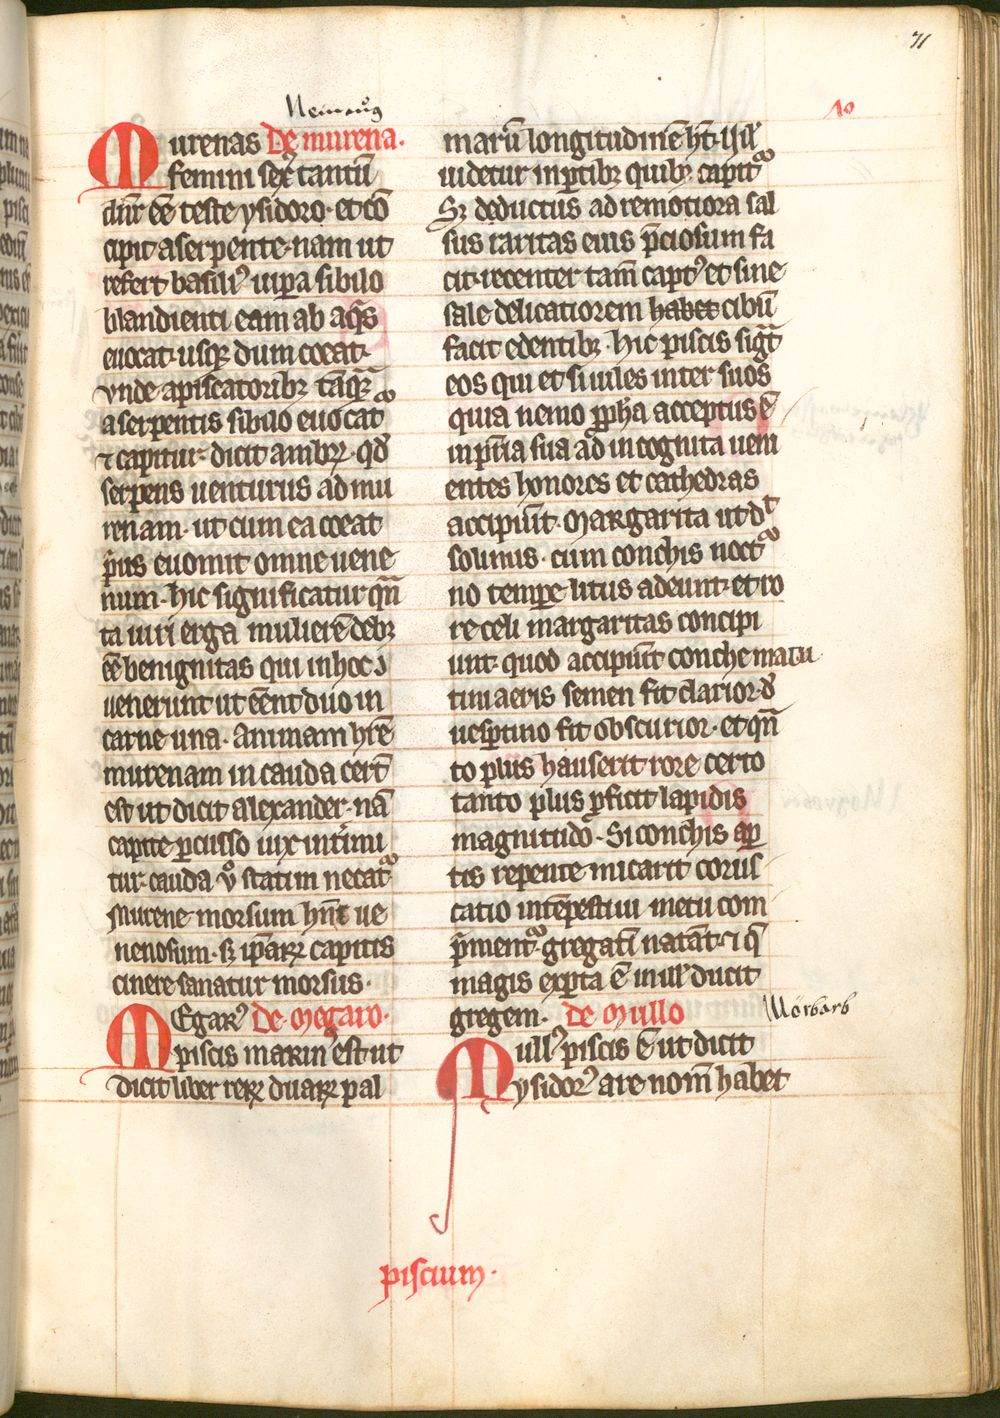 71
10
Murenas De murena.
femini sexꝰ tantū
dn̄r eē teste ysidoro· et cō
cipit a serpente· nam ut
refert basiliꝰ uip̄a sibilo
blandienti eam ab aqͥs
euocat· usqꝫ dum coeat·
vnde a piscatoribꝫ tāqꝫ
a serpentis sibilo euocat᷑
⁊ capitur· dicit ambrꝰ· qd̄
serpens uenturus ad mu
renam· ut cum ea coeat
p̄us euomit omne uene
num· hic significatur qn̄
ta uiri erga mulierē debꝫ
eē benignitas qui in hoc ɔ
uenerunt ut eēnt duo in
carne una· Animam hr̄e
murenam in cauda cert̄
est ut dicit alexander· nā
capite ꝑcusso uix intimi
tur· cauda v̊ statim necat᷑
Murene morsum hn̄t ue
nenosum· sꝫ ip̄arꝝ capitis
cinere sanatur morsus·
MEgarꝰ De Megaro·
piscis marinꝰ est ut
dicit liber rerꝝ duarꝝ pal
marū longitudinē hꝫt· isil᷑
uidetur in ꝑtibꝫ quibꝫ capit᷑
Sꝫ deductus ad remotiora sal
sus raritas eius p̄ciosum fa
cit· recenter tam̄ captꝰ et sine
sale delicatiorem habet cibū
facit edentibꝫ· hic piscis sigt̄
eos qui et si uiles inter suos
quia nemo ꝓpha acceptus ē
in p̄ria sua ad incognita ueni
entes honores et cathedras
accipiūt· Margarita ut dt̄
solinus· cum conchis noct᷑
no tempe litus adeunt· et ro
re celi margaritas concipi
unt· quod accipiūt conche matu
tini aeris semen fit clarior· d̄
uesp̄tino fit obscurior· et qn̄
to plus hauserit rore certo
tanto plus ꝓficit lapidis
magnitudo· Si conchis aꝑ
tis repente micarit corus
catio intēpestiui metu com
p̄ment᷑· gregati natāt· ⁊ q̄
magis exꝑta ē in ill᷑ ducit
gregem· De Mullo
Mullꝰ piscis ē ut dicit
ysidorꝰ a re nom̄ habet
Mörbarb
piscium·